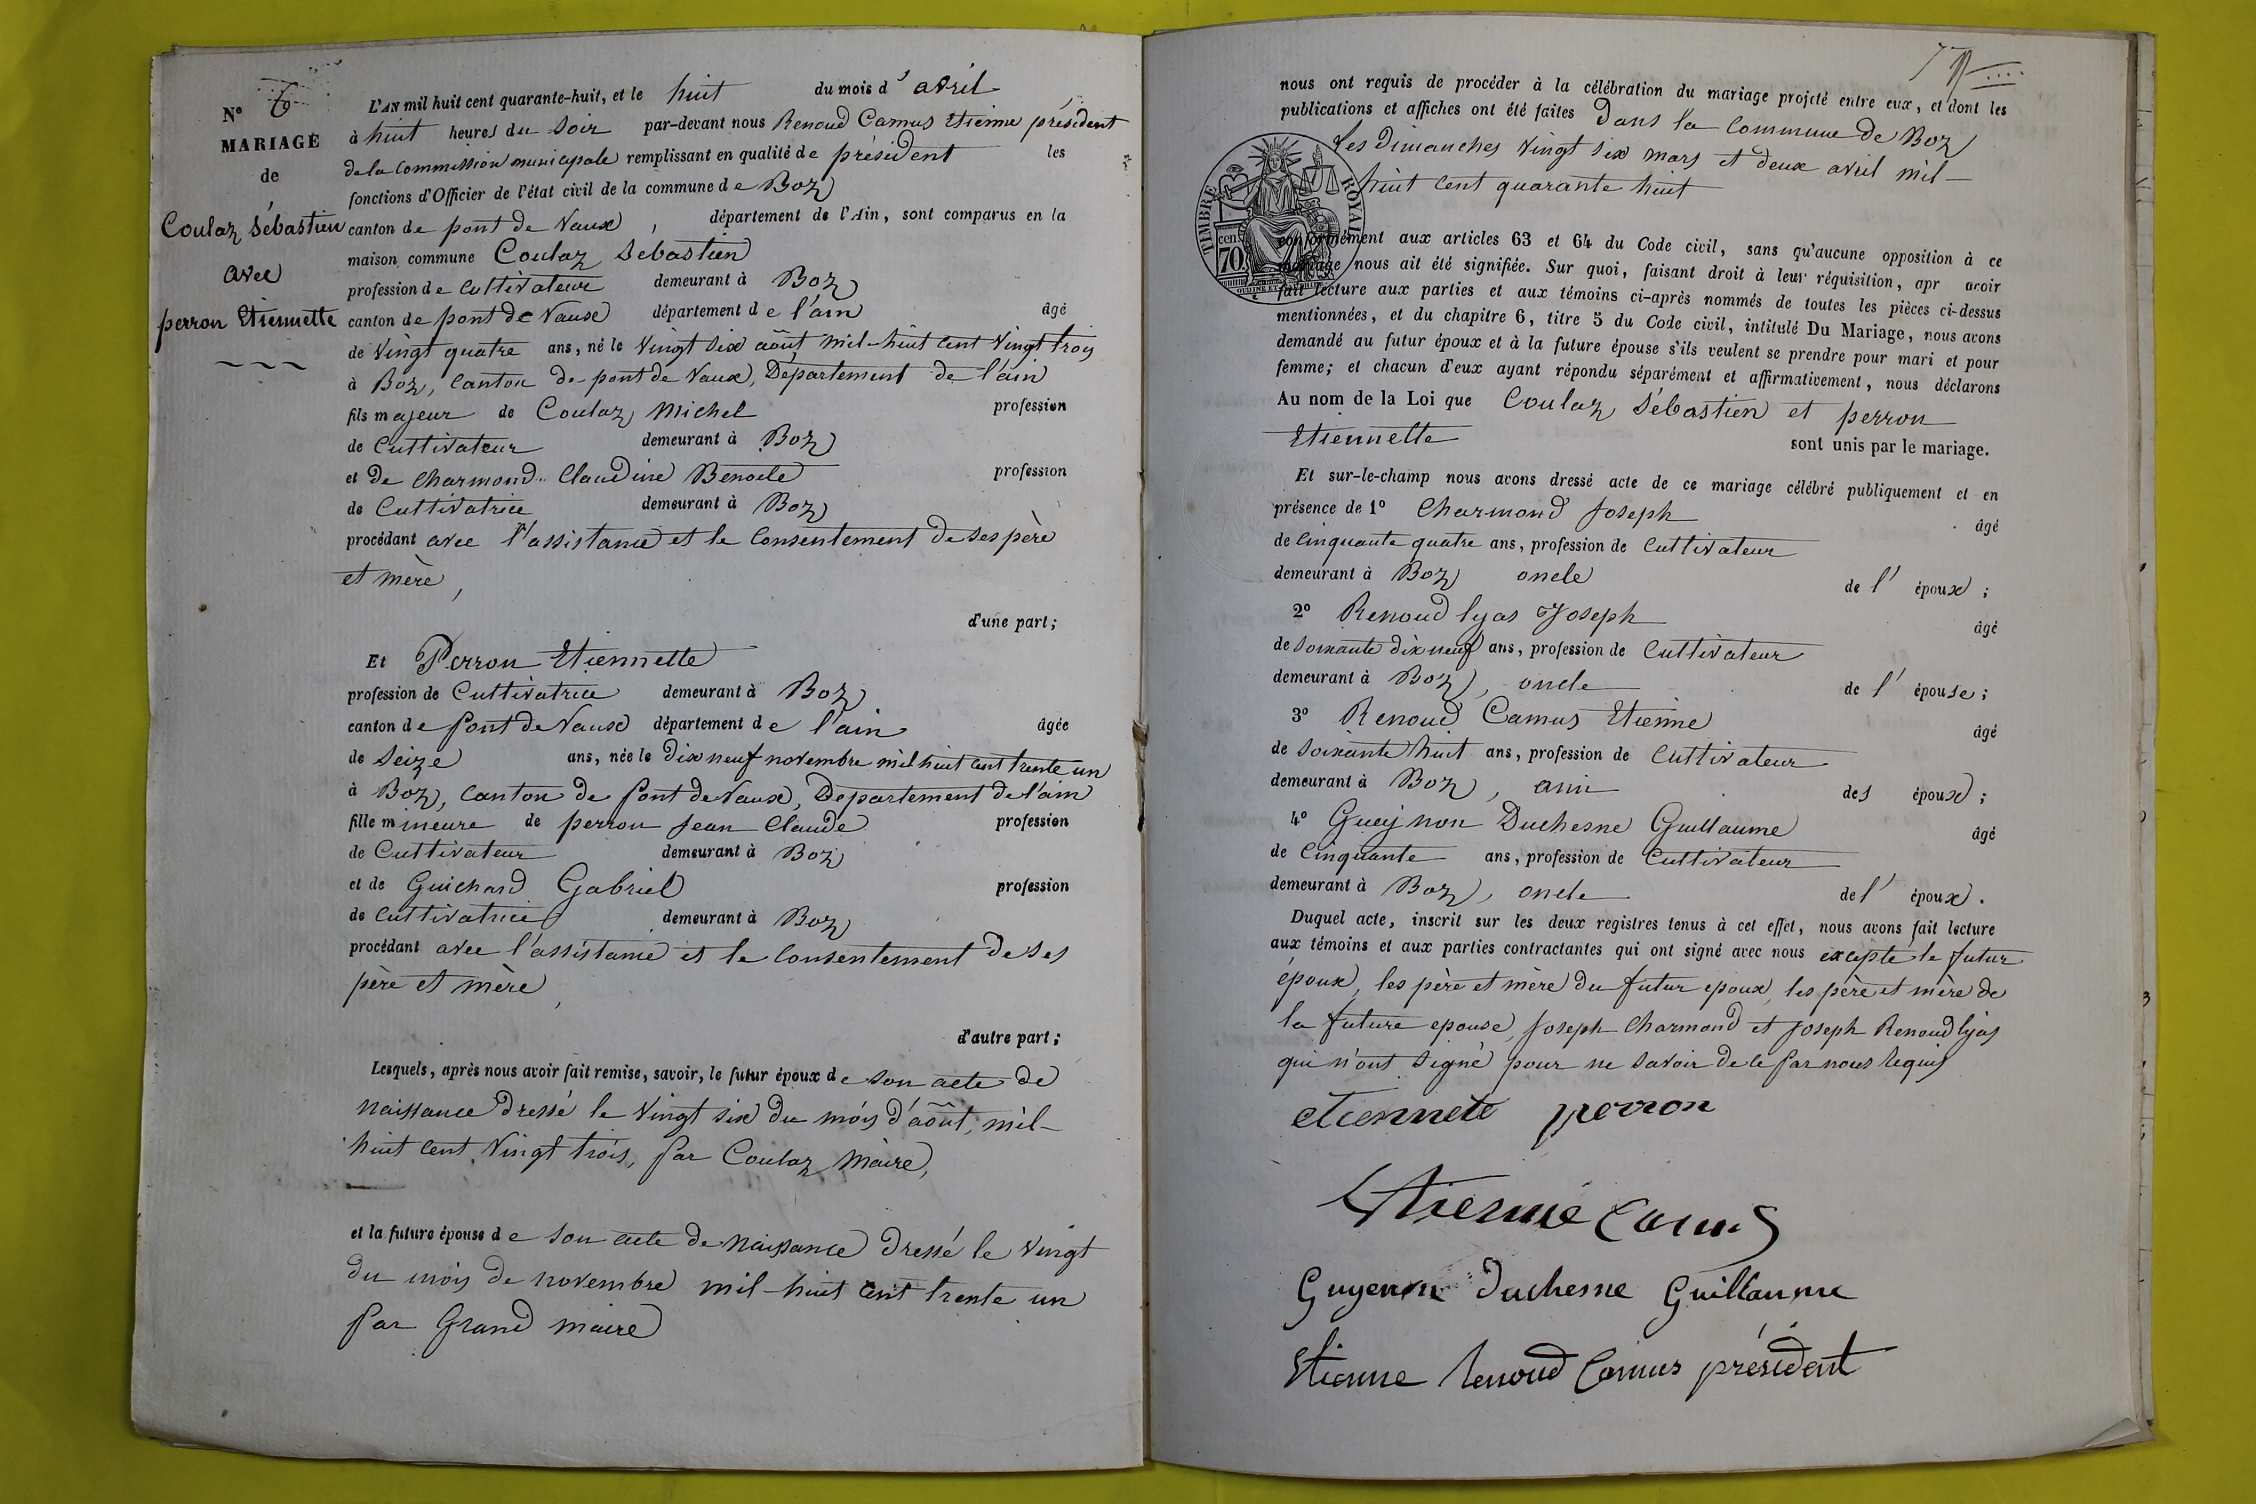 N° 6
MARIAGE
de
Coulaz Sébastien
avec
perron Etiennette
L'AN mil huit cent quarante-huit, et le huit du mois d'avril
à huit heures du soir par-devant nous Renoud Camus Etienne président
de la Commission municipale remplissant en qualité de président les
fonctions d'Officier de l'état civil de la commune de Boz
canton de pont de Vaux, département de l'Ain, sont comparus en la
maison commune Coulaz Sébastien
profession de Cultivateur demeurant à Boz
canton de pont de Vaux département de l'ain âgé
de Vingt quatre ans, né le Vingt six août mil-huit cent Vingt trois
à Boz, Canton de pont de Vaux, Département de l'ain
fils majeur de Coulaz Michel profession
de Cultivateur demeurant à Boz
et de Charmond Claudine Benoite profession
de Cultivatrice demeurant à Boz
procédant avec l'assistance et le Consentement de ses père
et mère,
d'une part;
Et Perron Etiennette
profession de Cultivatrice demeurant à Boz
canton de pont de Vaux département de l'ain âgée
de Seize ans, née le dix neuf novembre mil huit cent trente un
à Boz, Canton de pont de Vaux, Departement de l'ain
fille mineure de perron Jean Claude profession
de Cultivateur demeurant à Boz
et de Guichard Gabriel profession
de Cultivatrice demeurant à Boz
procédant avec l'assistance et le Consentement de ses
père et mère,
d'autre part;
Lesquels, après nous avoir fait remise, savoir, le futur époux de son acte de
naissance dressé le Vingt six du mois d'août, mil-
huit cent Vingt trois, par Coulaz Maire,
et la future épouse de son acte de naissance dressé le Vingt
du mois de novembre mil-huit cent trente un
par Grand maire
nous ont requis de procéder à la célébration du mariage projeté entre eux, et dont les
publications et affiches ont été faites Dans la Commune de Boz
Les Dimanches Vingt six mars et deux avril mil-
huit Cent quarante huit
TIMBRE ROYAL
70
cen
conformément aux articles 63 et 64 du Code civil, sans qu'aucune opposition à ce
mariage nous ait été signifiée. Sur quoi, faisant droit à leur réquisition, apr avoir
fait lecture aux parties et aux témoins ci-après nommés de toutes les pièces ci-dessus
mentionnées, et du chapitre 6, titre 5 du Code civil, intitulé Du Mariage, nous avons
demandé au futur époux et à la future épouse s'ils veulent se prendre pour mari et pour
femme; et chacun d'eux ayant répondu séparément et affirmativement, nous déclarons
Au nom de la Loi que Coulaz Sébastien et perron
Etiennette sont unis par le mariage.
Et sur-le-champ nous avons dressé acte de ce mariage célébré publiquement et en
présence de 1° Charmond Joseph âgé
de Cinquante quatre ans, profession de Cultivateur
demeurant à Boz oncle de l'époux;
2° Renoud lyas Joseph âgé
de soixante dix neuf ans, profession de Cultivateur
demeurant à Boz, oncle de l'épouse;
3° Renoud Camus Etienne âgé
de soixante huit ans, profession de Cultivateur
demeurant à Boz, ami des époux;
4° Gueynon Duchesne Guillaume âgé
de Cinquante ans, profession de Cultivateur
demeurant à Boz, oncle de l'époux.
Duquel acte, inscrit sur les deux registres tenus à cet effet, nous avons fait lecture
aux témoins et aux parties contractantes qui ont signé avec nous excepté le futur
époux, les père et mère du futur epoux, les père et mère de
la future epouse, Joseph Charmond et Joseph Renoud lyas
qui n'ont signé pour ne savoir de ce par nous requis
etiennete perron
Etienne Camus
Guyenon Duchesne Guillaume
Etienne Renoud Camus président